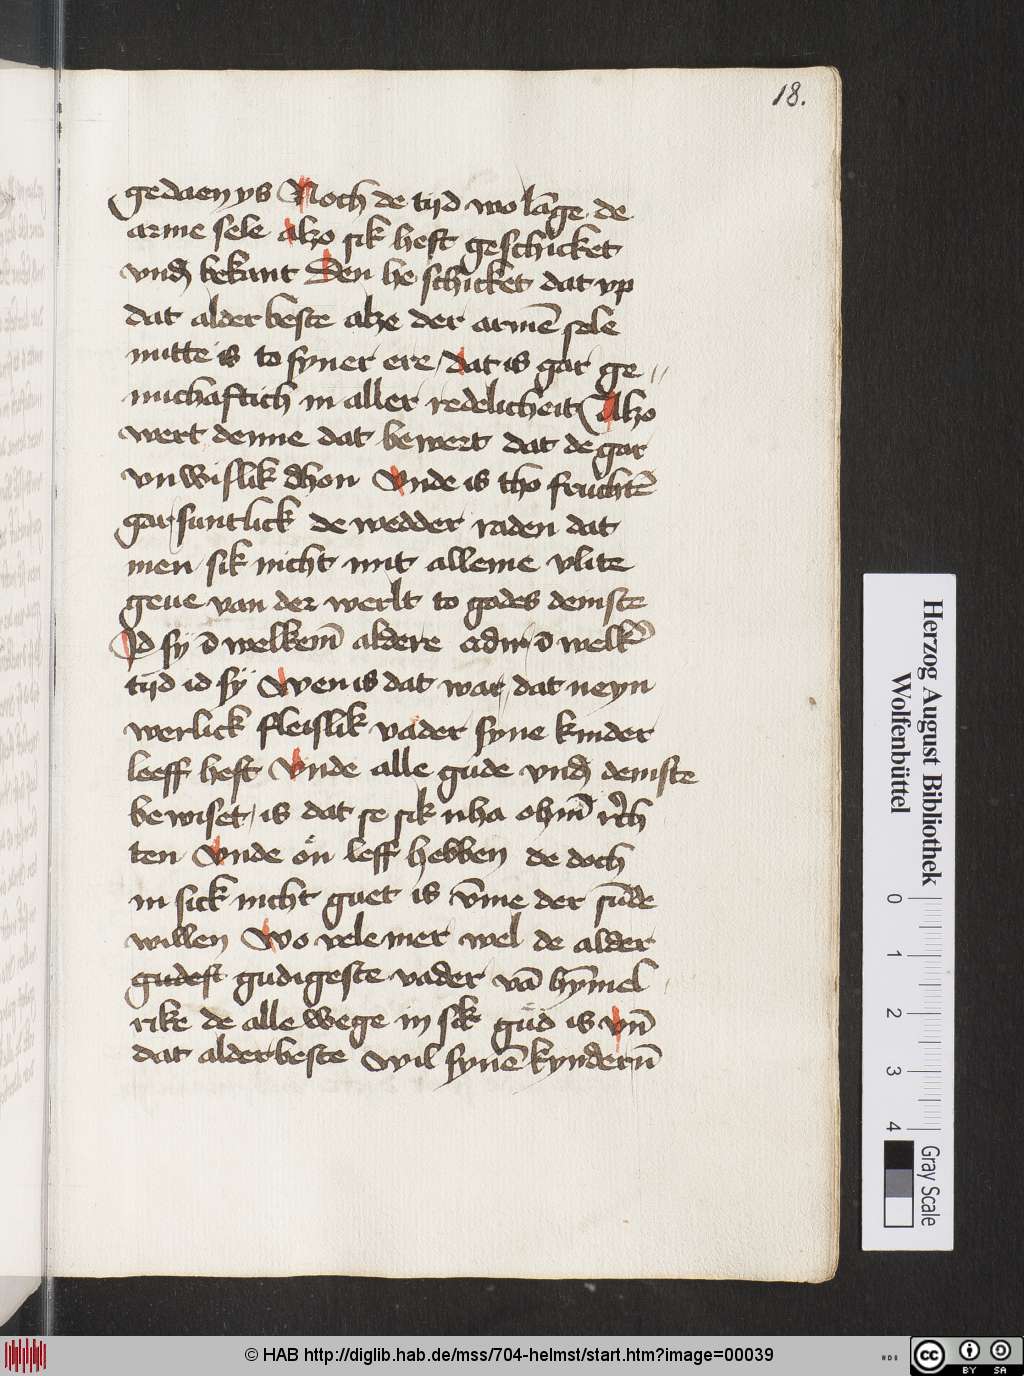 18.
gedaen ys Noch de tijd wo lāge de
arme sele alzo sik heft geschicket
vnd bekant Den he schicket dat vp
dat alder beste alze der armē sele
nutte is to syner ere / dat is gar ge„
nuchaftich in aller redelicheit Alzo
wert denne dat bewert dat de gar
vnwislik dhon Vnde is tho fruchtē
gar suntlick de wedder raden dat
men sik nicht mit alleme vlite
geue van der werlt to godes deinste
Id sy ī welkem̄ aldere adir ī welk̄
tijd id sÿ Wen is dat war / dat neyn
werlick fleislik vader syne kinder
leeff heft Vnde alle gude vnd deinste
bewiset / is dat se sik nha ohm̄ rich
ten Vnde ön leff hebben de doch
in sick nicht guet is v̄me der sūde
willen Wo vele mer wel de alder
gudest gudigeste vader vā hȳmel
rike de alle wege in sik gud is vn̄
dat alderbeste wil synē kyndern̄
Herzog August Bibliothek
Wolfenbüttel
0 1 2 3 4
Gray Scale
© HAB http://diglib.hab.de/mss/704-helmst/start.htm?image=00039
cc BY SA